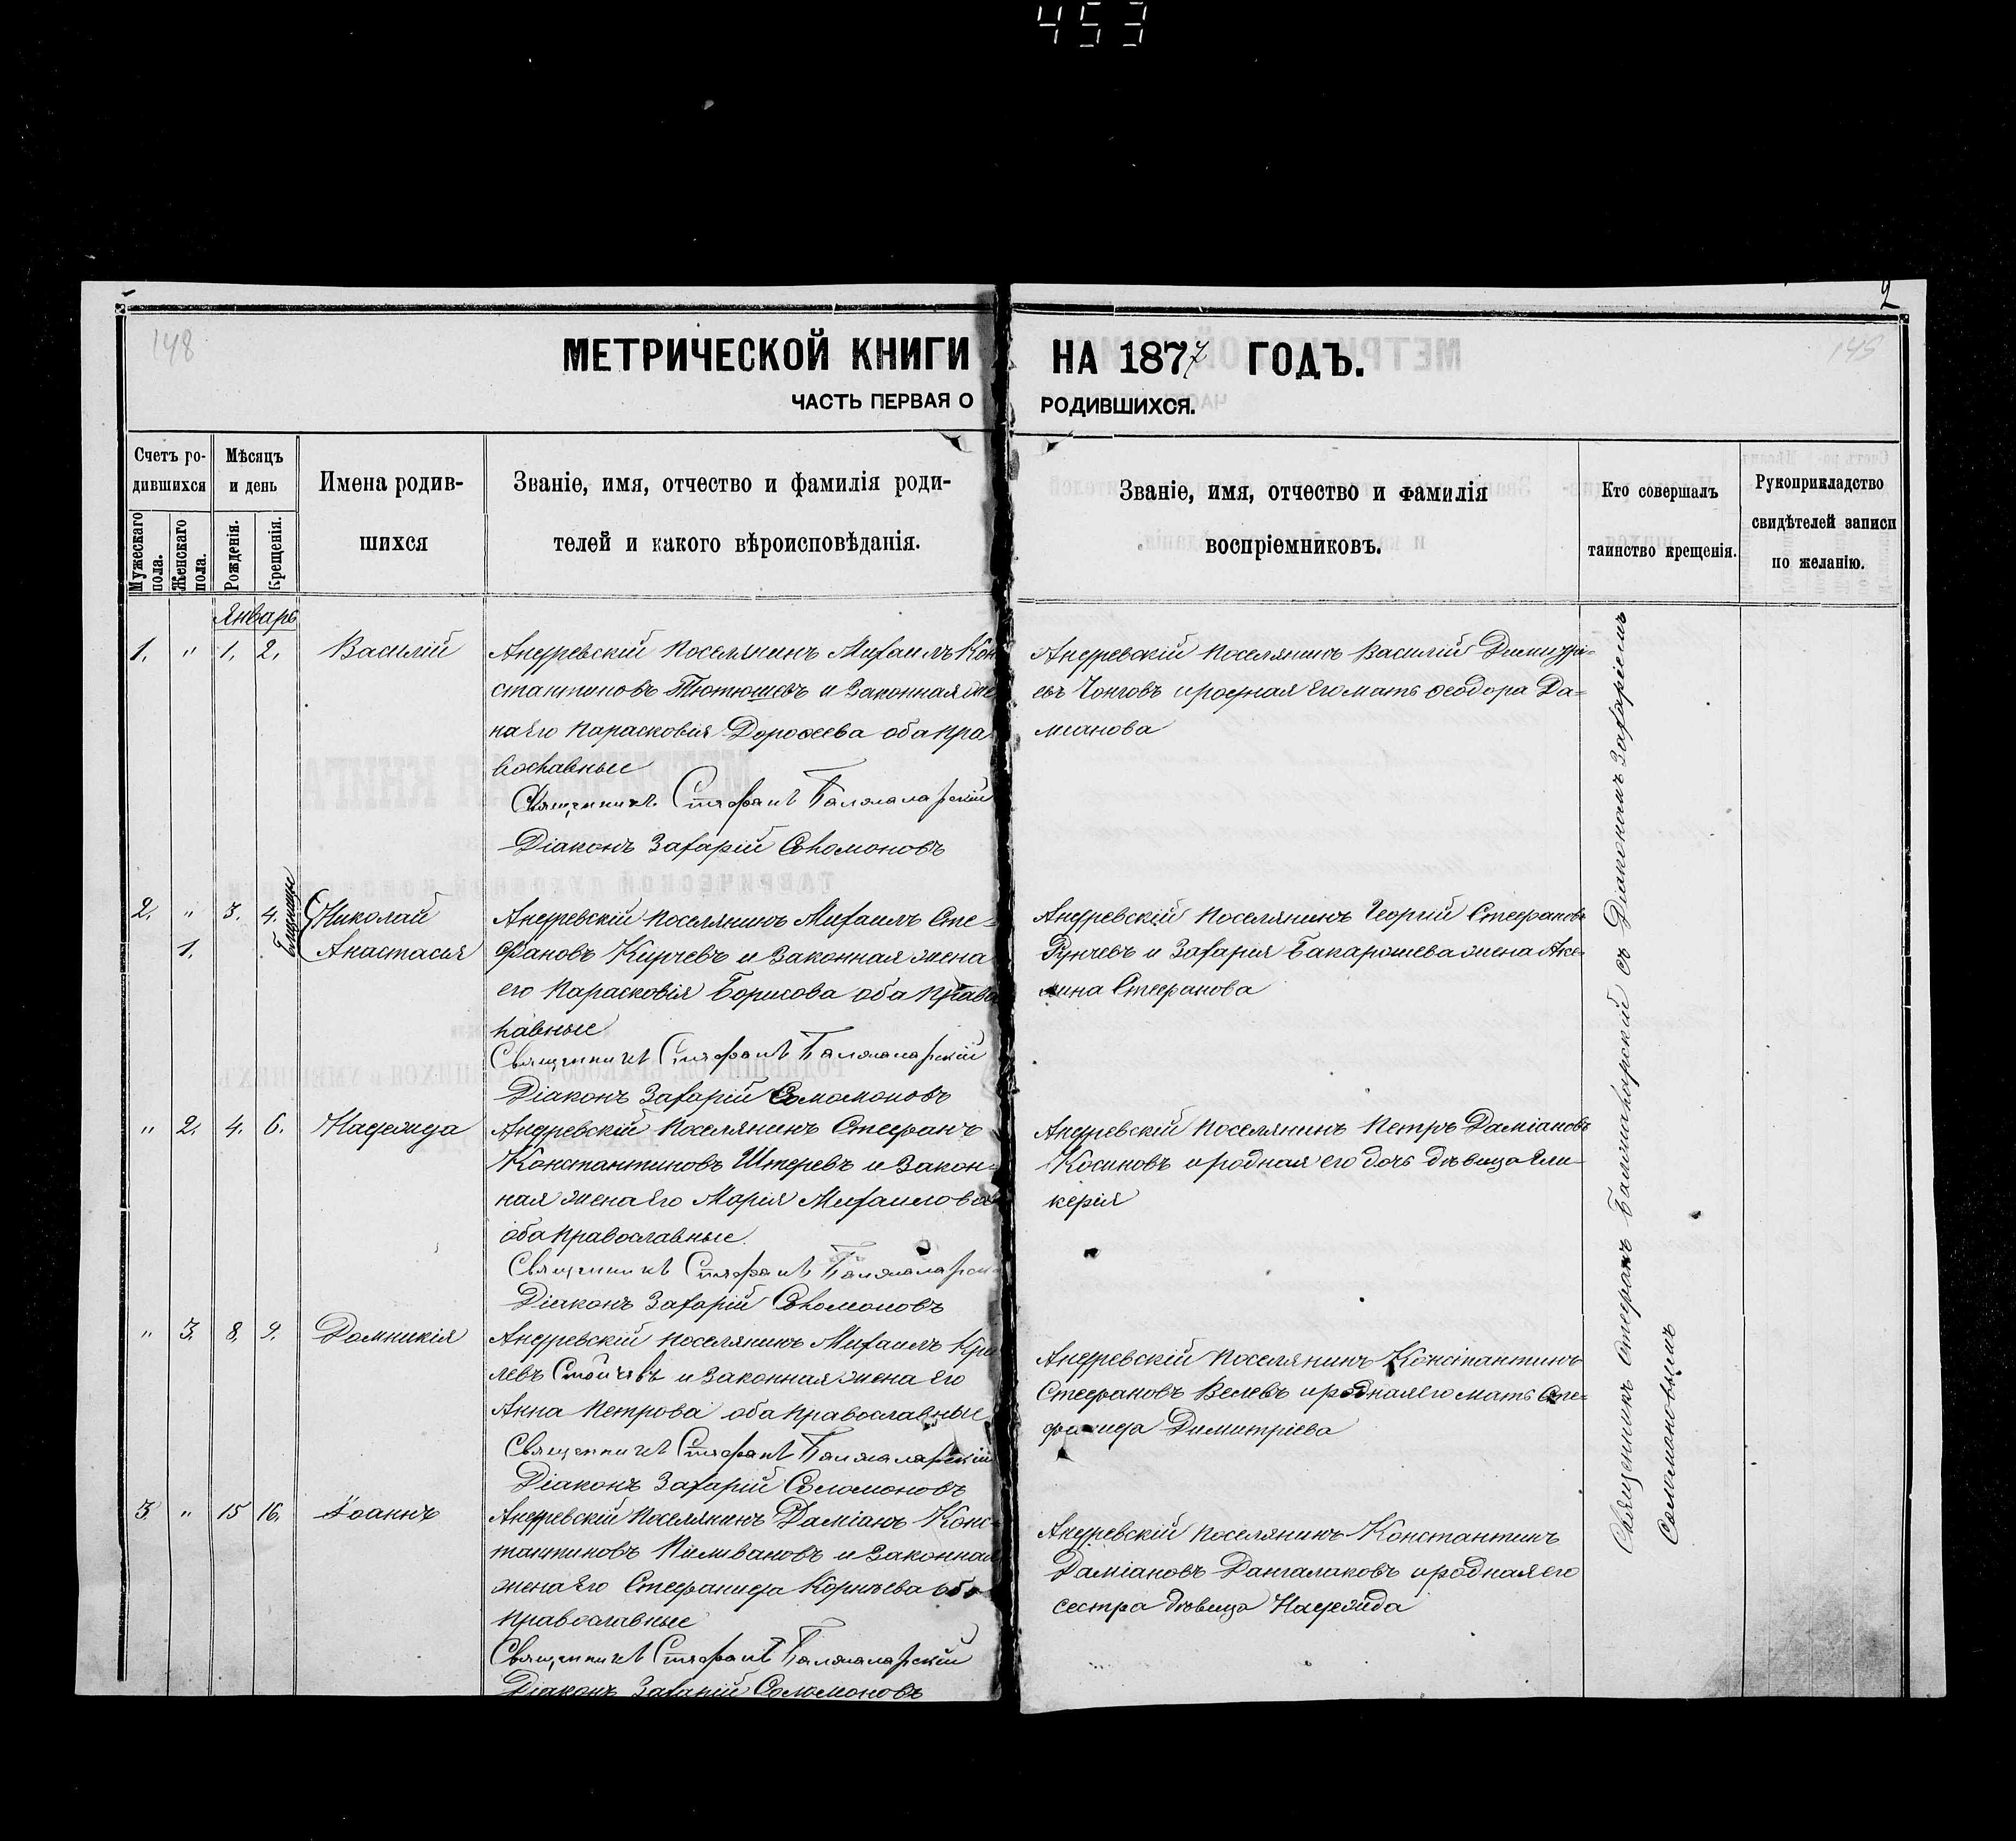 453
2
148
149
МЕТРИЧЕСКОЙ КНИГИ НА 1877 ГОДЪ.
ЧАСТЬ ПЕРВАЯ О РОДИВШИХСЯ.
Счетъ ро-
дившихся
Мужескаго пола.
Женскаго пола.
Мѣсяцъ
и день
Рожденія.
Крещенія.
Имена родив-
шихся
Званіе, имя, отчество и фамилія роди-
телей и какого вѣроисповѣданія.
Званіе, имя, отчество и фамилія
воспріемниковъ.
Кто совершалъ
таинство крещенія.
Рукоприкладство
свидѣтелей записи
по желанію.
Январь
1. " 1. 2. Василій
Андревскій поселянинъ Михаилъ Кон
стантиновъ Тютюшевъ и законная же
на его Парасковія Дорофеева оба пра
вославные
Священникъ Стефанъ Балжаларскій
Діаконъ Захарій Соломоновъ
Андревскій поселянинъ Василій Димитрі=
евъ Чонговъ и родная его мать Феодора Да=
міанова
2. " 3. 4. Близнецы Николай
1. Анастасья
Андревскій поселянинъ Михаилъ Сте=
фановъ Кирчевъ и законная жена
его Парасковія Борисова оба право
славные
Священникъ Стефанъ Балжаларскій
Діаконъ Захарій Соломоновъ
Андревскій поселянинъ Георгій Стефановъ
Рунчевъ и Захарія Бакарошева жена Аке-
лина Стефанова
" 2. 4. 6. Надежда
Андревскій поселянинъ Стефанъ
Константиновъ Штеревъ и закон=
ная жена его Марія Михаилова
оба православные.
Священникъ Стефанъ Балжаларскі
Діаконъ Захарій Соломоновъ
Андревскій поселянинъ Петръ Даміановъ
Косиновъ и родная его дочь дѣвица Гли-
керія
" 3. 8. 9. Домникія
Андревскій поселянинъ Михаилъ Кри
левъ Стойчевъ и законная жена его
Анна Петрова оба православные
Священникъ Стефанъ Балжаларскій
Діаконъ Захарій Соломоновъ
Андревскій поселянинъ Константинъ
Стефановъ Велевъ и родная его мать Сте=
фанида Димитріева
3. " 15 16. Іоаннъ
Андревскій поселянинъ Даміанъ Конс=
тантиновъ Пиливановъ и законная
жена его Стефанида Корнѣева оба
православные
Священникъ Стефанъ Балжаларскій
Діаконъ Захарій Соломоновъ
Андревскій поселянинъ Константинъ
Даміановъ Дангалаковъ и родная его
сестра дѣвица Надежда
Священникъ Стефанъ Балжаларскій съ Діакономъ Захаріемъ
Соломановымъ